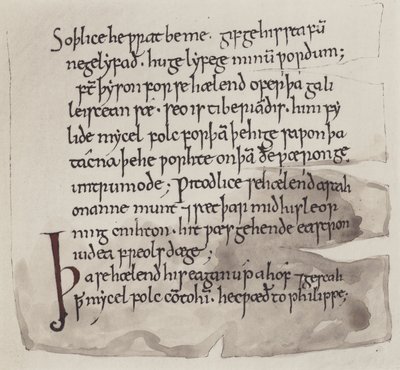 Soþlice he ƿrat be me · gif ge his stafū
ne gelẏfað · hu ge lẏfe ge minū ƿordum;
Æft þẏson for se hælend ofer þa gali
leiscean sæ · seo is tiberiadis · him fẏ
lide mẏcel folc forþā þe hi ge saƿon þa
tacna þe he ƿorhte on þā ðe ƿæron ge
untrumode; Ƿitodlice se hælend astah
on anne munt · ⁊ sæt þar mid his leor
ning cnihton · hit ƿæs gehende eastron
iudea freols dæge;
Þa se hælend his eagan up ahof ⁊ geseah
ꝥ mẏcel folc cō to hī · he cƿæð to philippe;